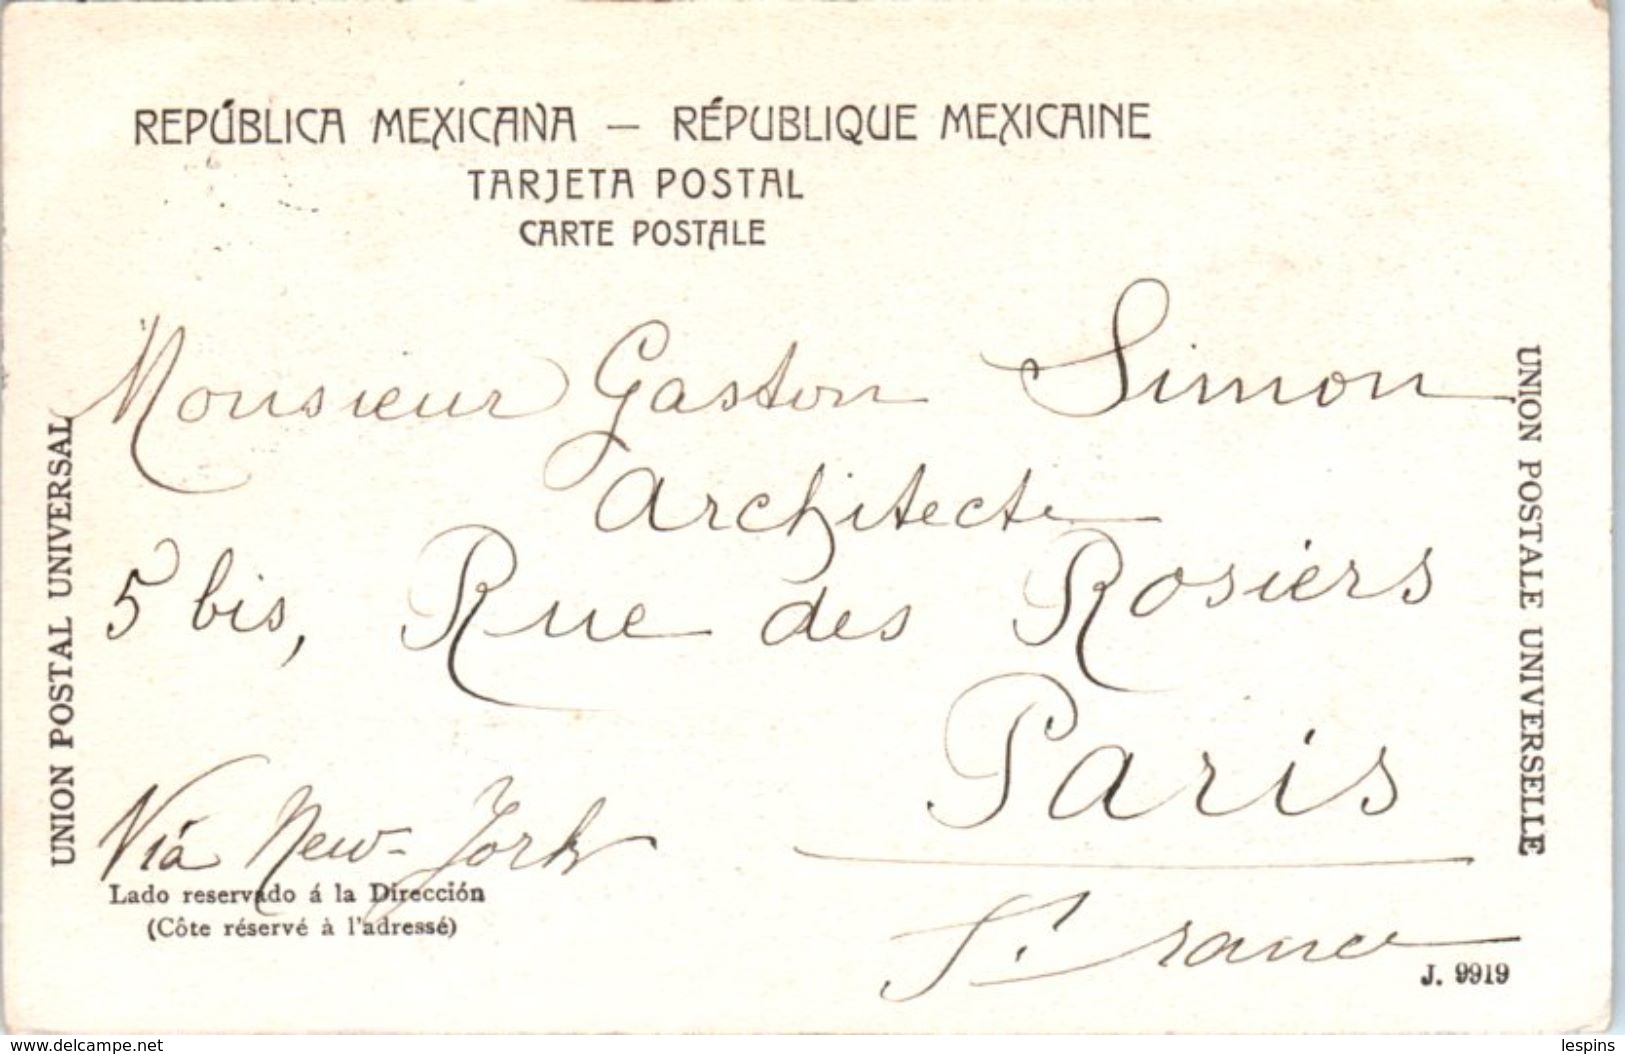 REPÚBLICA MEXICANA — RÉPUBLIQUE MEXICAINE
TARJETA POSTAL
CARTE POSTALE
UNION POSTAL UNIVERSAL
UNION POSTALE UNIVERSELLE
Monsieur Gaston Simon
Architecte
5 bis, Rue des Rosiers
Paris
Viá New-York
France
Lado reservado á la Dirección
(Côte réservé à l'adressé)
J. 9919
www.delcampe.com
lespins